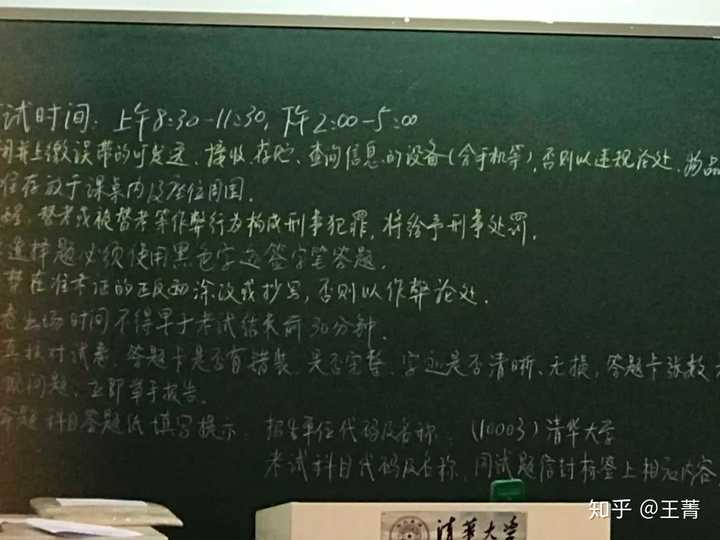 试时间：上午8:30-11:30，下午2:00-5:00
闭并上缴误带的可发送、接收、存贮、查询信息的设备（含手机等），否则以违规论处。物品
在存放于课桌内及座位周围。
替考或被替考等作弊行为构成刑事犯罪，将给予刑事处罚。
选择题必须使用黑色字迹签字笔答题。
禁在准考证的正反面涂改或抄写，否则以作弊论处。
卷出场时间不得早于考试结束前30分钟。
真核对试卷、答题卡是否有错装、是否完整、字迹是否清晰、无损，答题卡张数
现问题，立即举手报告。
命题科目答题纸填写提示：招生单位代码及名称：（10003）清华大学
考试科目代码及名称：同试题信封标签上相应内容
清华大学
知乎 @王菁